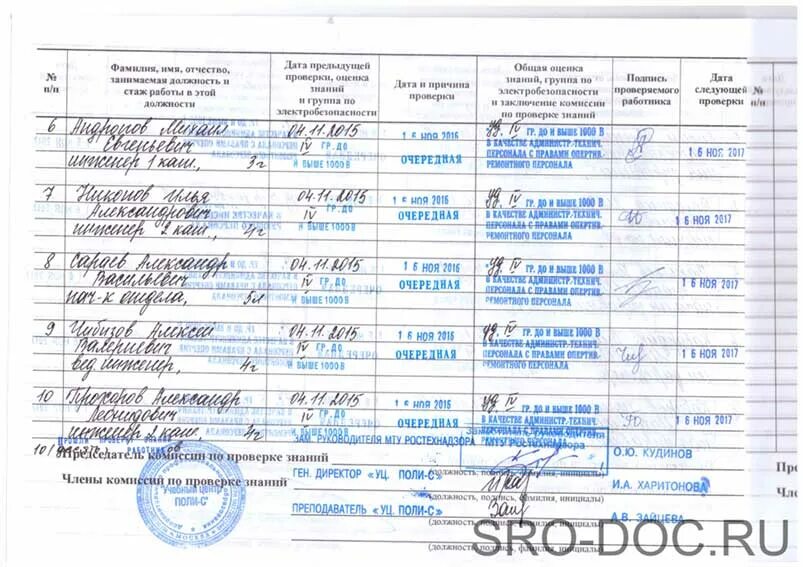 № п/п
Фамилия, имя, отчество, занимаемая должность и стаж работы в этой должности
Дата предыдущей проверки, оценка знаний и группа по электробезопасности
Дата и причина проверки
Общая оценка знаний, группа по электробезопасности и заключение комиссии по проверке знаний
Подпись проверяемого работника
Дата следующей проверки
№ п/п
6 Андронов Михаил 04.11.2015 16 НОЯ 2016 уд. IV ГР. ДО И ВЫШЕ 1000 В
Евгеньевич IV ГР. ДО В КАЧЕСТВЕ АДМИНИСТР.-ТЕХНИЧ. 16 НОЯ 2017
инженер 1 кат., 3г И ВЫШЕ 1000 В ОЧЕРЕДНАЯ ПЕРСОНАЛА С ПРАВАМИ ОПЕРТИВ-
РЕМОНТНОГО ПЕРСОНАЛА
7 Никонов Илья 04.11.2015 16 НОЯ 2016 уд. IV ГР. ДО И ВЫШЕ 1000 В
Александрович IV ГР. ДО ОЧЕРЕДНАЯ В КАЧЕСТВЕ АДМИНИСТР.-ТЕХНИЧ. 16 НОЯ 2017
инженер 2 кат., 4г И ВЫШЕ 1000 В ПЕРСОНАЛА С ПРАВАМИ ОПЕРТИВ-
РЕМОНТНОГО ПЕРСОНАЛА
8 Сараев Александр 04.11.2015 16 НОЯ 2016 уд. IV ГР. ДО И ВЫШЕ 1000 В
Васильевич IV ГР. ДО ОЧЕРЕДНАЯ В КАЧЕСТВЕ АДМИНИСТР.-ТЕХНИЧ. 16 НОЯ 2017
нач-к отдела, 5л И ВЫШЕ 1000 В ПЕРСОНАЛА С ПРАВАМИ ОПЕРТИВ-
РЕМОНТНОГО ПЕРСОНАЛА
9 Чибизов Алексей 04.11.2015 16 НОЯ 2016 уд. IV ГР. ДО И ВЫШЕ 1000 В
Валериевич IV ГР. ДО ОЧЕРЕДНАЯ В КАЧЕСТВЕ АДМИНИСТР.-ТЕХНИЧ. 16 НОЯ 2017
вед. инженер, 4г И ВЫШЕ 1000 В ПЕРСОНАЛА С ПРАВАМИ ОПЕРТИВ-
РЕМОНТНОГО ПЕРСОНАЛА
10 Прохоров Александр 04.11.2015 16 НОЯ 2016 уд. IV ГР. ДО И ВЫШЕ 1000 В
Леонидович IV ГР. ДО ОЧЕРЕДНАЯ В КАЧЕСТВЕ АДМИНИСТР.-ТЕХНИЧ. 16 НОЯ 2017
инженер 2 кат., 4г И ВЫШЕ 1000 В ПЕРСОНАЛА С ПРАВАМИ ОПЕРТИВ-
ПРОШЛИ ПРОВЕРКУ ЗНАНИЙ
РАБОТНИКОВ
ЗАМ. РУКОВОДИТЕЛЯ МТУ РОСТЕХНАДЗОРА
МТУ Ростехнадзора
Председатель комиссии по проверке знаний О.Ю. КУДИНОВ
(должность, подпись, фамилия, инициалы)
Члены комиссии по проверке знаний ГЕН. ДИРЕКТОР «УЦ. ПОЛИ-С» И.А. ХАРИТОНОВА
(должность, подпись, фамилия, инициалы)
Учебный центр
ПОЛИ-С
МОСКВА
ПРЕПОДАВАТЕЛЬ «УЦ. ПОЛИ-С» А.В. ЗАЙЦЕВА
(должность, подпись, фамилия, инициалы)
(должность, подпись, фамилия, инициалы)
SRO-DOC.RU